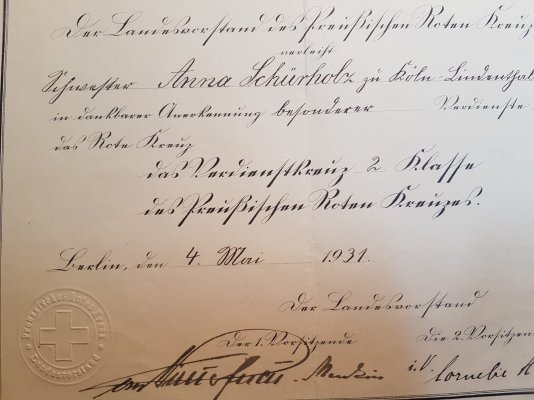 Der Landesvorstand des Preußischen Roten Kreuz
verleiht
Schwester Anna Schürholz zu Köln-Lindenthal
in dankbarer Anerkennung besonderer Verdienste
das Rote Kreuz
das Verdienstkreuz 2. Klasse
des Preußischen Roten Kreuzes.
Berlin, den 4. Mai 1931.
Der Landesvorstand
Der 1. Vorsitzende Die 2. Vorsitzen
i.V. Cornelie
Preussisches Rotes Kreuz
Landesvorstand